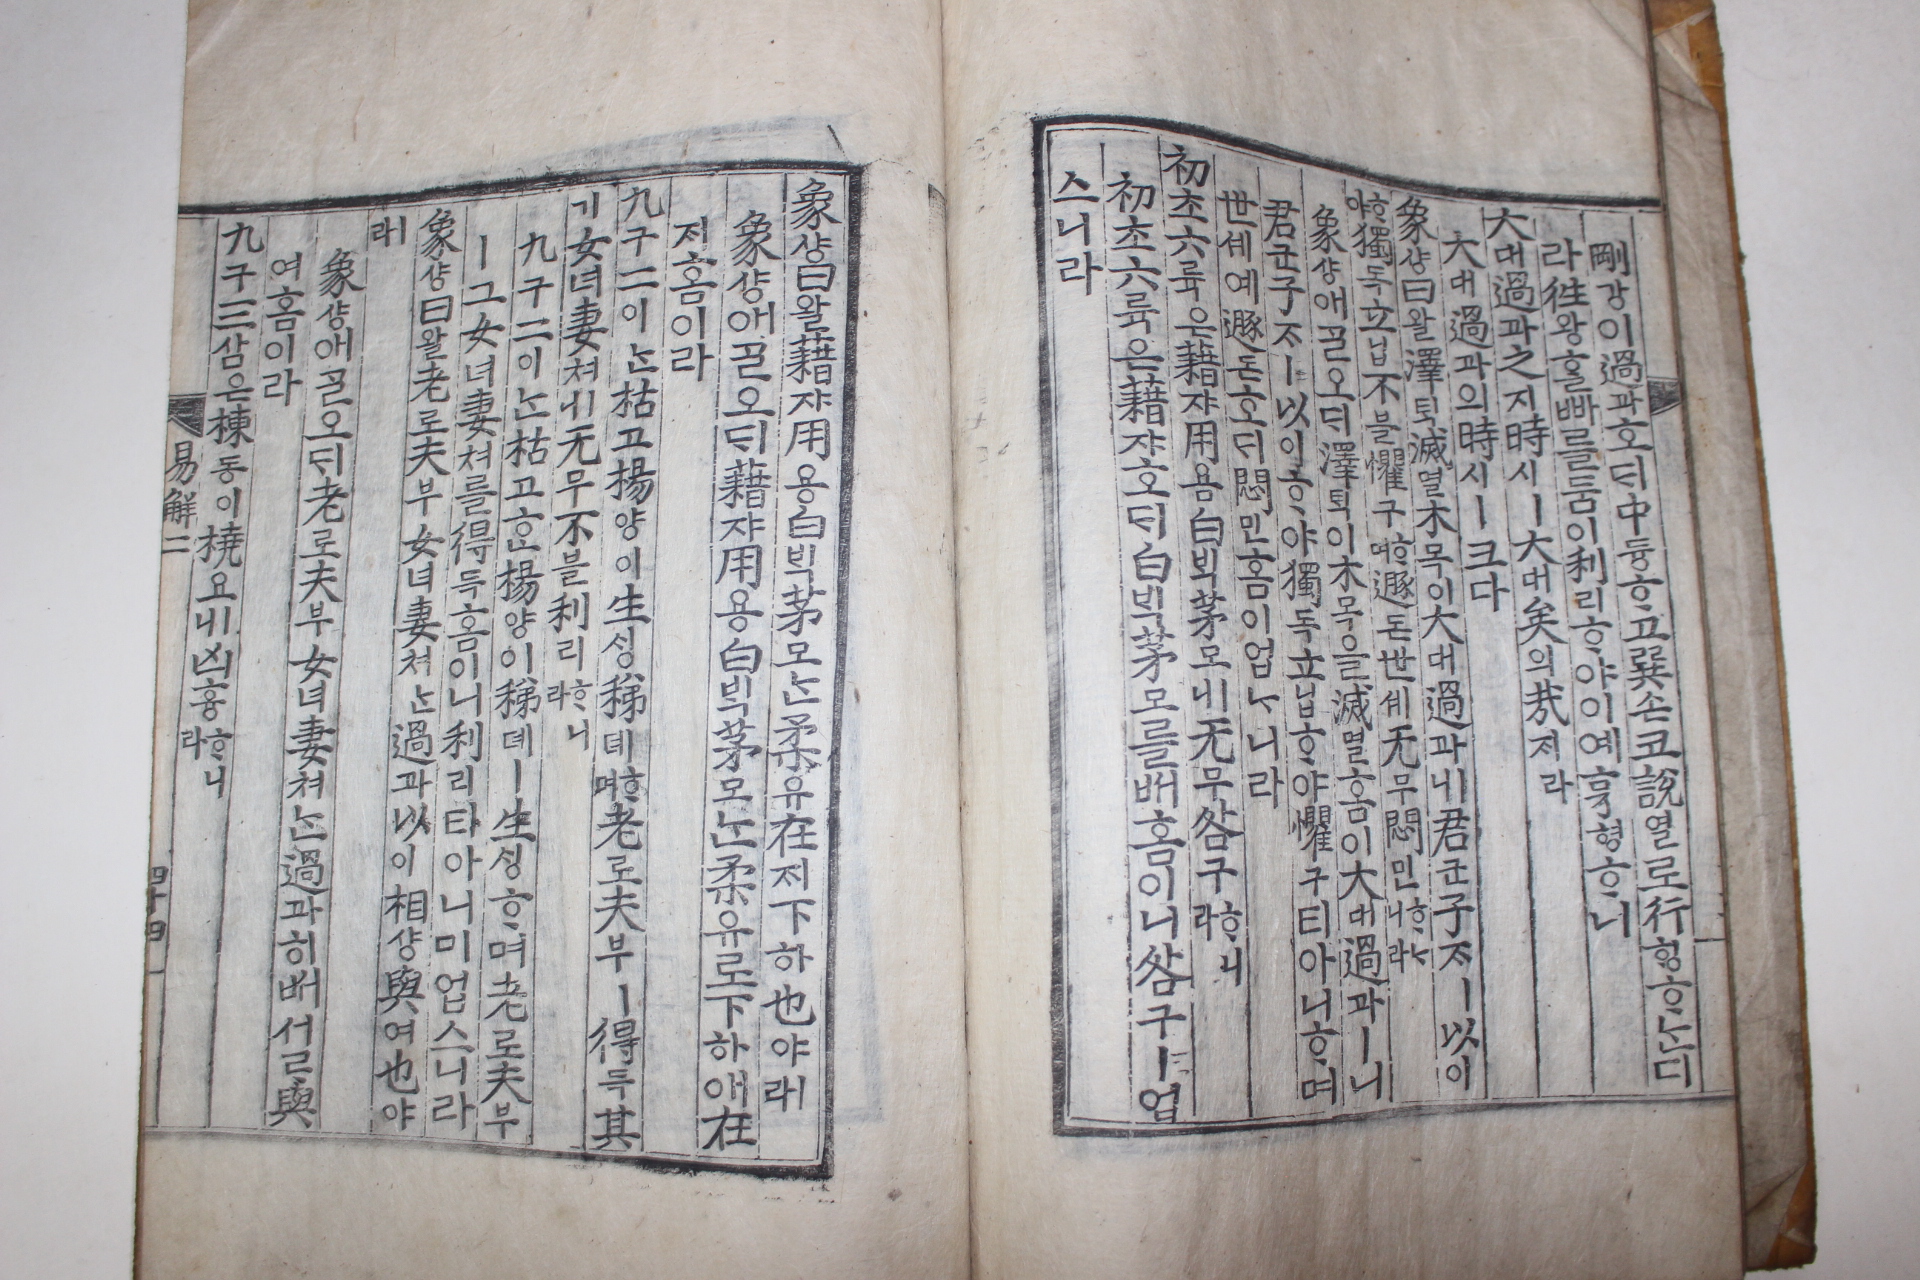 剛강이過과호ᄃᆡ中듕ᄒᆞ고巽손코說열로行ᄒᆡᆼᄒᆞᄂᆞᆫ디
라往왕홀빠를둠이利리ᄒᆞ야이예亨형ᄒᆞ니
大대過과之지時시ㅣ大대矣의哉ᄌᆡ라
大대過과의時시ㅣ크다
象샹曰왈澤ᄐᆡᆨ滅멸木목이大대過과ㅣ니君군子ᄌᆞㅣ以이
ᄒᆞ야獨독立닙不블懼구ᄒᆞ며遯돈世셰无무悶민ᄒᆞᄂᆞ니라
象샹애ᄀᆞᆯ오ᄃᆡ澤ᄐᆡᆨ이木목을滅멸홈이大대過과ㅣ니
君군子ᄌᆞㅣ以이ᄒᆞ야獨독立닙ᄒᆞ야懼구티아니ᄒᆞ며
世셰예遯돈호ᄃᆡ悶민홈이업ᄂᆞ니라
初초六륙은藉쟈用용白ᄇᆡᆨ茅모ㅣ니无무咎구ᄒᆞ니라
初초六륙은藉쟈호ᄃᆡ白ᄇᆡᆨ茅모를ᄡᅥ홈이니咎구ㅣ업
스니라
象샹曰왈藉쟈用용白ᄇᆡᆨ茅모ᄂᆞᆫ柔유在ᄌᆡ下하也야ㅣ라
象샹애ᄀᆞᆯ오ᄃᆡ藉쟈用용白ᄇᆡᆨ茅모ᄂᆞᆫ柔유로下하애在
ᄌᆡ홈이라
九구二이ᄂᆞᆫ枯고楊양이生ᄉᆡᆼ稊뎨ᄒᆞ며老로夫부ㅣ得득其
기女녀妻쳐ㅣ니无무不블利리ᄒᆞ니라
九구二이ᄂᆞᆫ枯고ᄒᆞᆫ楊양이稊뎨ㅣ生ᄉᆡᆼᄒᆞ며老로夫부
ㅣ그女녀妻쳐를得득홈이니利리티아니미업스니라
象샹曰왈老로夫부女녀妻쳐ᄂᆞᆫ過과以이相샹與여也야
ㅣ라
象샹애ᄀᆞᆯ오ᄃᆡ老로夫부女녀妻쳐ᄂᆞᆫ過과히ᄡᅥ서르與
여홈이라
九구三삼은棟동이橈요ㅣ니凶흉ᄒᆞ니라
易解二
四十四